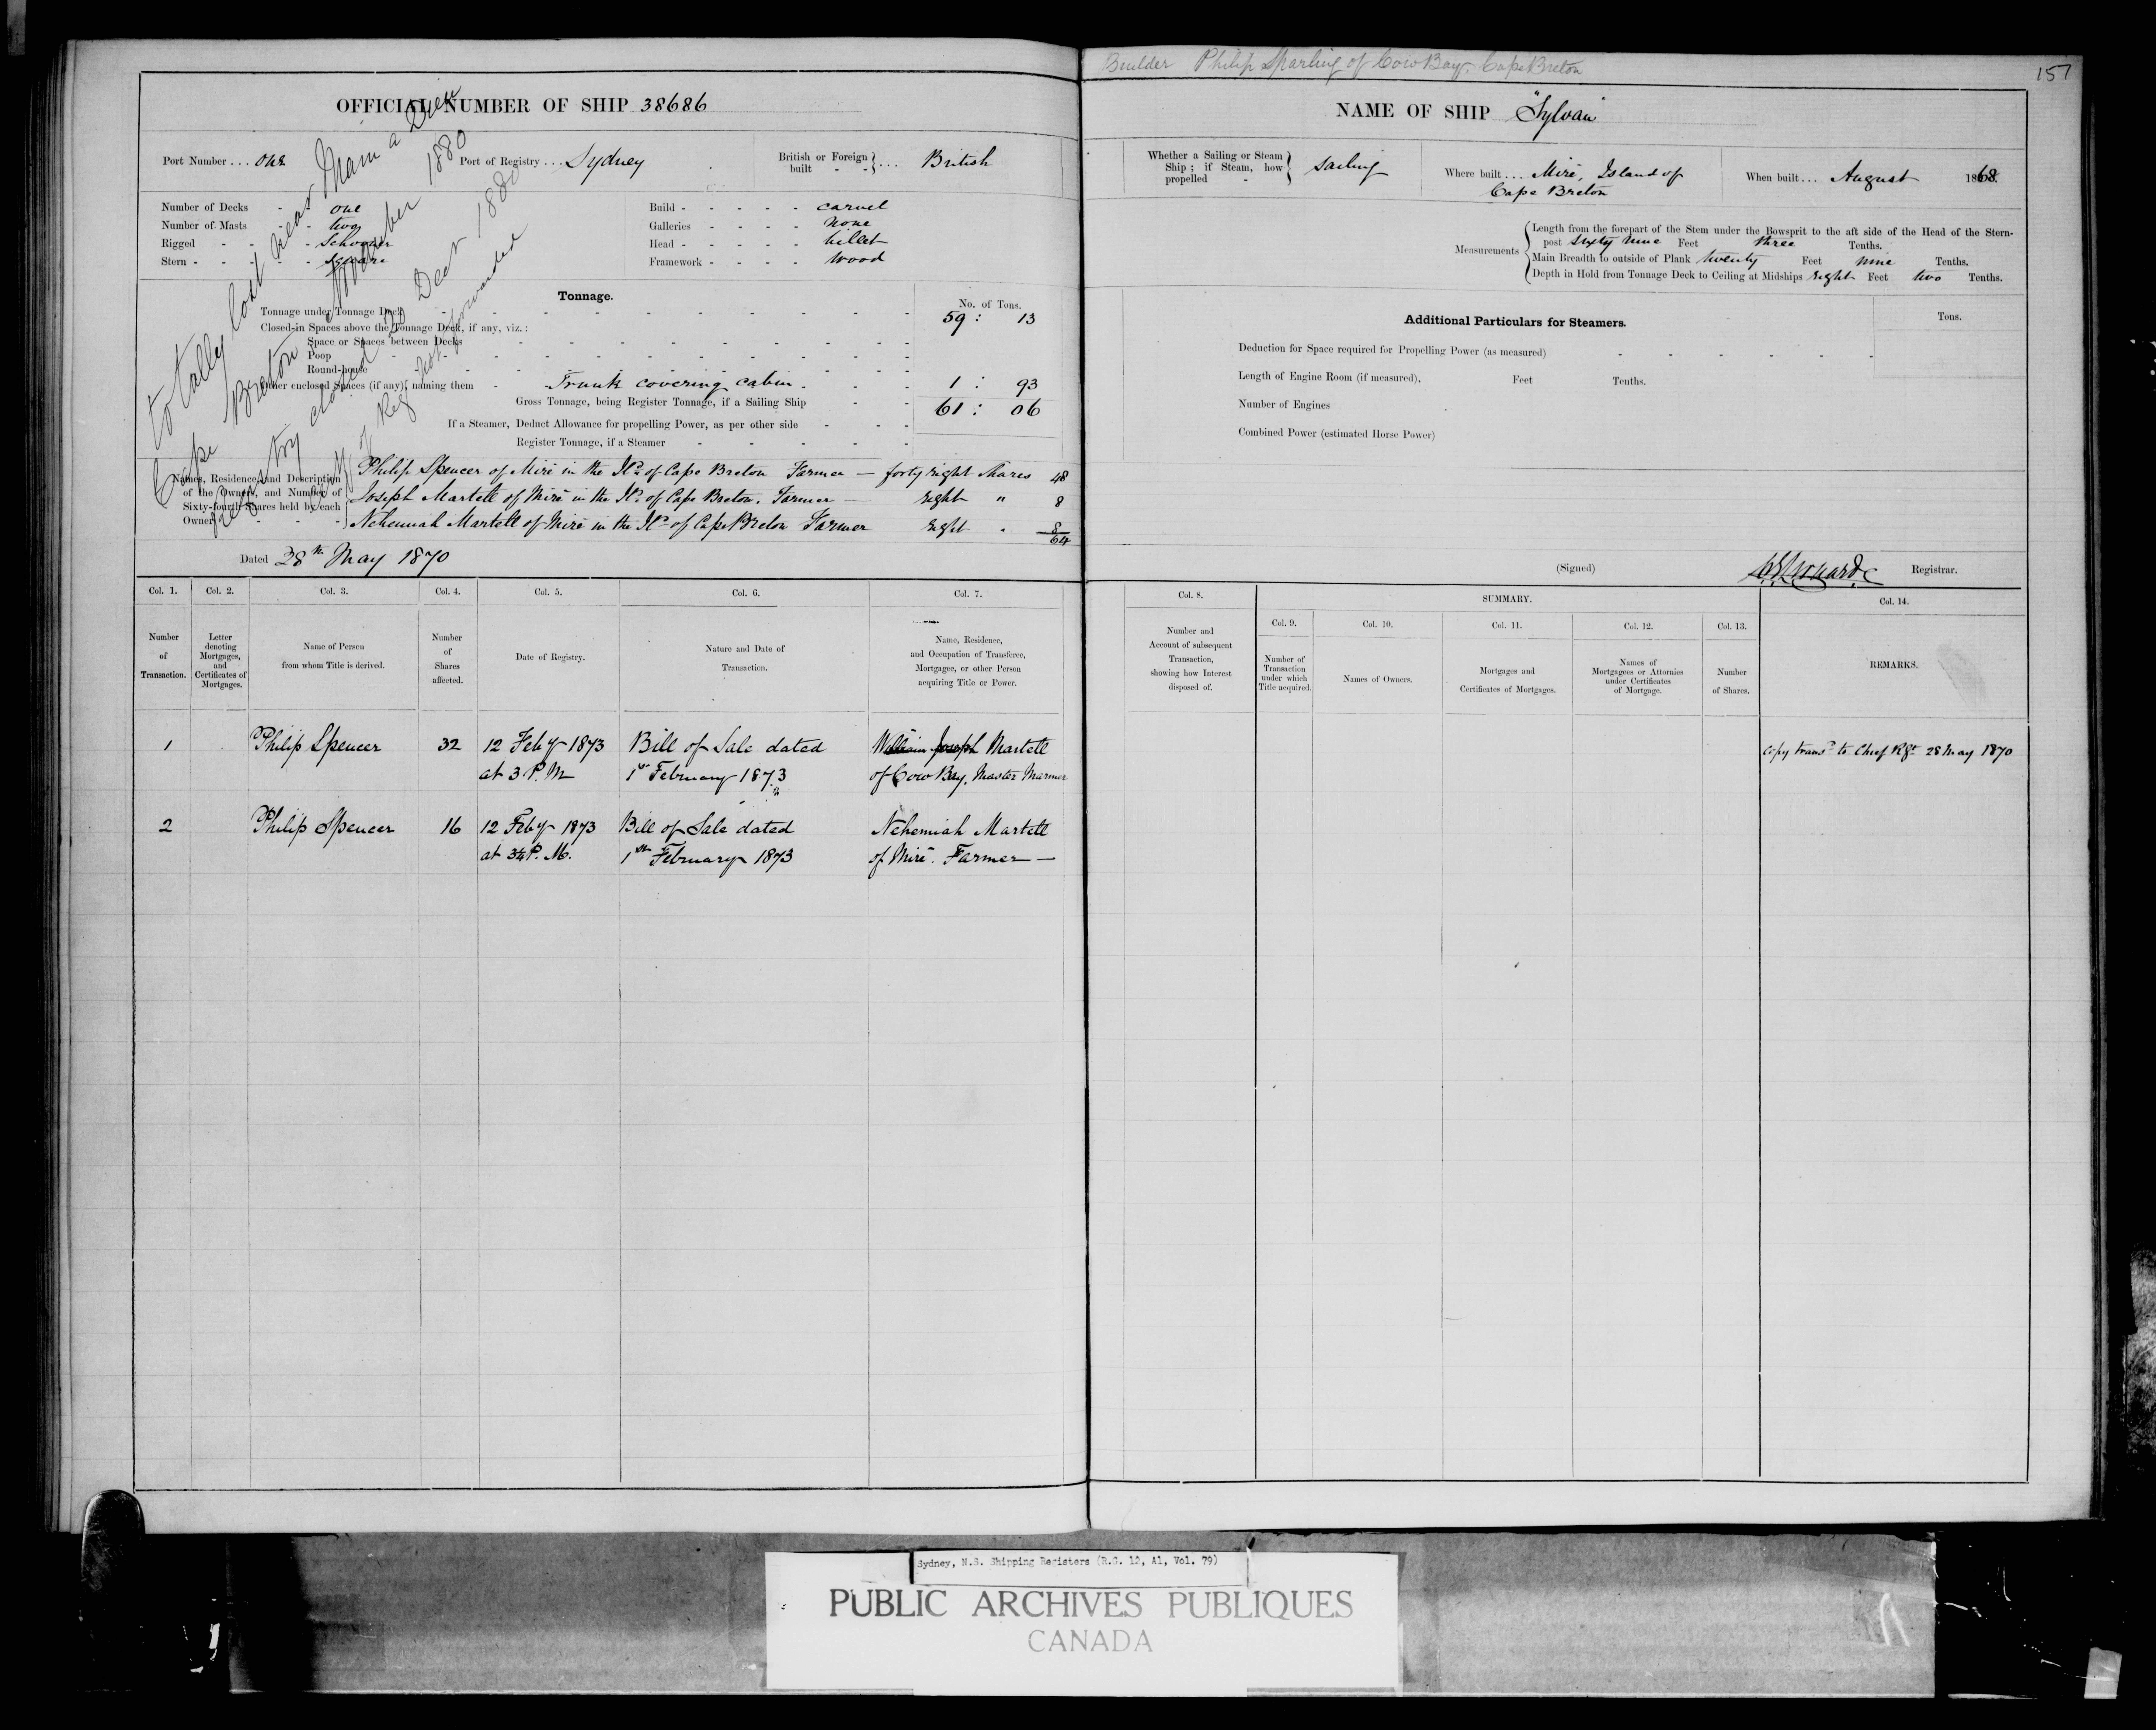 Builder Philip Sparling of Cow Bay, Cape Breton
157
OFFICIAL NUMBER OF SHIP 38686
NAME OF SHIP "Sylvan"
Port Number ... one
Port of Registry ... Sydney
British or Foreign built - - } ... British
Whether a Sailing or Steam Ship ; if Steam, how propelled - } Sailing
Where built ... Miré, Island of
Cape Breton
When built ... August 1868.
Number of Decks - - one
Number of Masts - - two
Rigged - - - - Schooner
Stern - - - - - Square
Build - - - - - carvel
Galleries - - - - none
Head - - - - - billet
Framework - - - - Wood
Measurements
Length from the forepart of the Stem under the Bowsprit to the aft side of the Head of the Stern-
post sixty nine Feet three Tenths.
Main Breadth to outside of Plank twenty Feet nine Tenths.
Depth in Hold from Tonnage Deck to Ceiling at Midships eight Feet two Tenths.
totally lost near Main a Dieu
Cape Breton November 1880
Registry closed 20 Decr 1880
Copy of Reg not forwarded
Tonnage.
No. of Tons.
Tonnage under Tonnage Deck - - - - - - 59 : 13
Closed-in Spaces above the Tonnage Deck, if any, viz. :
Space or Spaces between Decks
Poop
Round-house
Other enclosed Spaces (if any), naming them - Trunk covering cabin - - - 1 : 93
Gross Tonnage, being Register Tonnage, if a Sailing Ship - - 61 : 06
If a Steamer, Deduct Allowance for propelling Power, as per other side - - -
Register Tonnage, if a Steamer - - - -
Additional Particulars for Steamers.
Tons.
Deduction for Space required for Propelling Power (as measured) - - - - - -
Length of Engine Room (if measured). Feet Tenths.
Number of Engines
Combined Power (estimated Horse Power)
Names, Residence, and Description
of the Owners, and Number of
Sixty-fourth Shares held by each
Owner
Philip Spencer of Miré in the Id. of Cape Breton Farmer — forty eight Shares 48
Joseph Martell of Miré in the Id. of Cape Breton, Farmer — eight " 8
Nehemiah Martell of Miré in the Id. of Cape Breton Farmer eight " 8
64
Dated 28th May 1870
(Signed) Registrar.
Col. 1. Col. 2. Col. 3. Col. 4. Col. 5. Col. 6. Col. 7. Col. 8. SUMMARY. Col. 14.
Col. 9. Col. 10. Col. 11. Col. 12. Col. 13.
Number of Transaction.
Letter denoting Mortgages, and Certificates of Mortgages.
Name of Person from whom Title is derived.
Number of Shares affected.
Date of Registry.
Nature and Date of Transaction.
Name, Residence, and Occupation of Transferee, Mortgagee, or other Person acquiring Title or Power.
Number and Account of subsequent Transaction, showing how Interest disposed of.
Number of Transaction under which Title acquired.
Names of Owners.
Mortgages and Certificates of Mortgages.
Names of Mortgagees or Attornies under Certificates of Mortgage.
Number of Shares.
REMARKS.
1 Philip Spencer 32 12 Feby 1873 Bill of Sale dated William Joseph Martell
at 3 P.M. 1st February 1873 of Cow Bay, Master Mariner
Copy transd to Chief Rgr 28 May 1870
2 Philip Spencer 16 12 Feby 1873 Bill of Sale dated Nehemiah Martell
at 3¼ P.M. 1st February 1873 of Miré. Farmer —
Sydney, N.S. Shipping Registers (R.G. 12, A1, Vol. 79)
PUBLIC ARCHIVES PUBLIQUES
CANADA